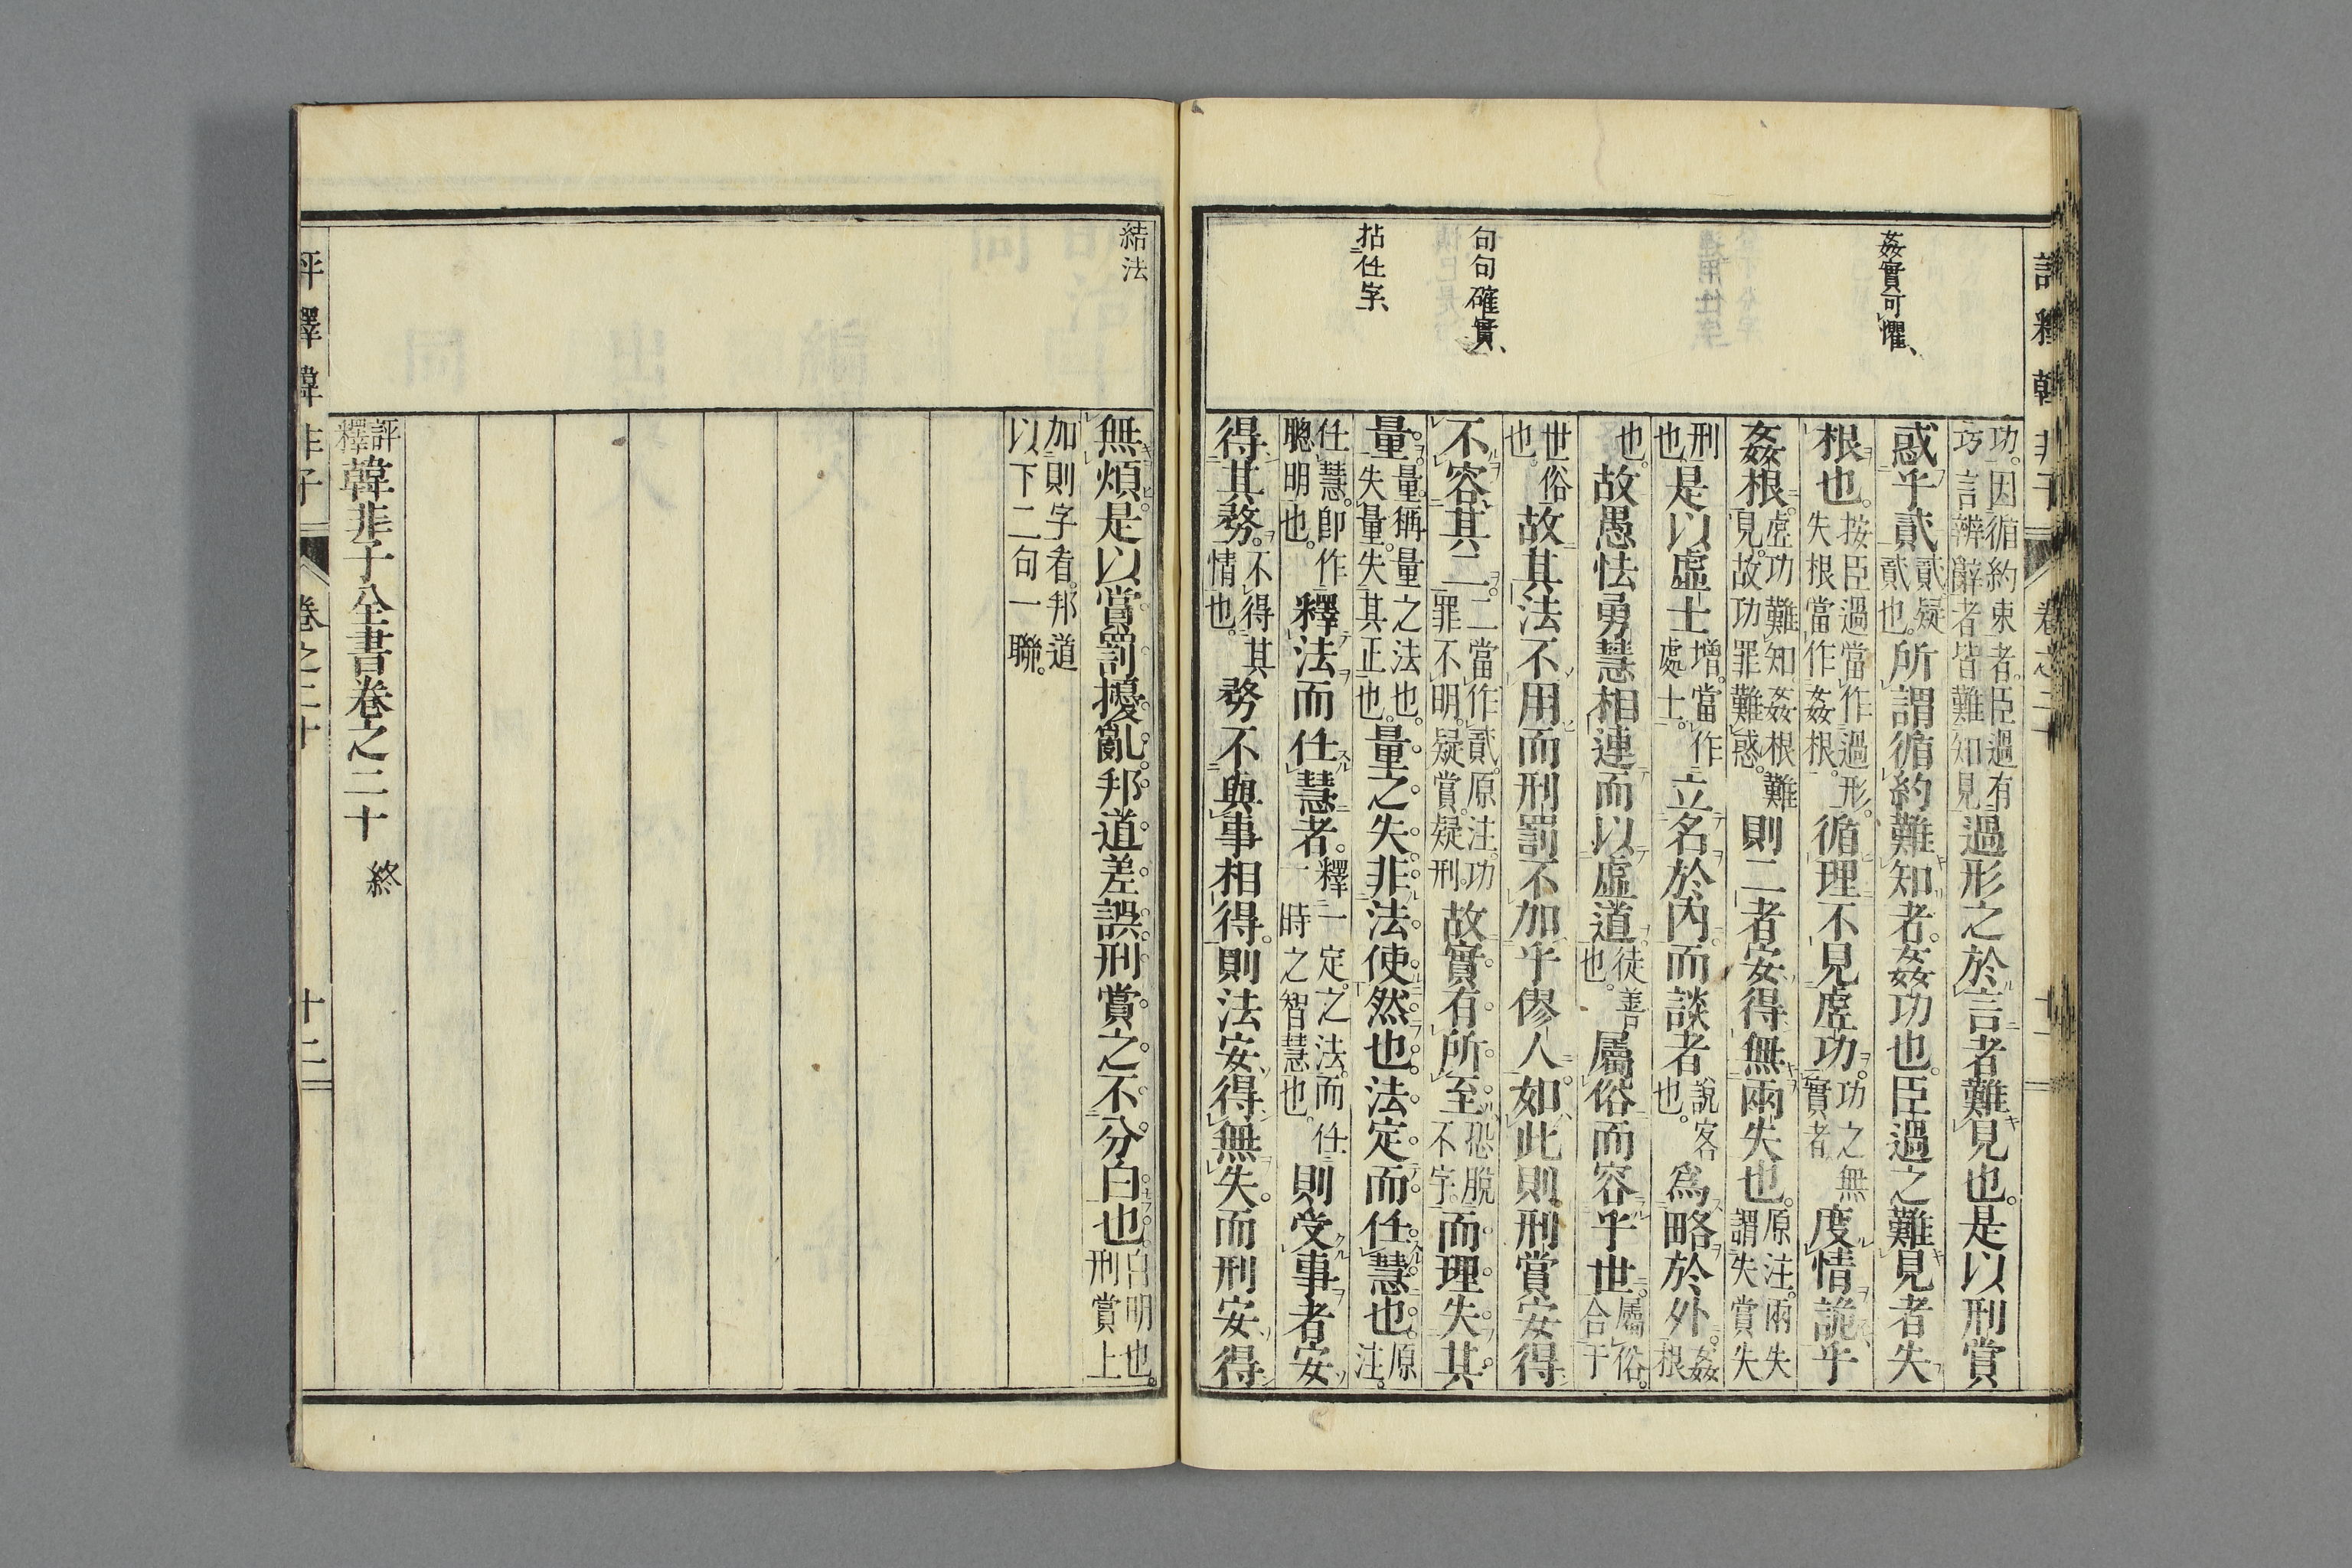 姦實可懼、
句句確實、
拈任字、
功。因循約束者。臣過有
巧言辨辭者皆難知見
過形之於言者難見也。是以刑賞
惑乎貳
貳疑
貳也。
所謂循約難知者。姦功也。臣過之難見者失
根也。
按臣過當作過形。
失根當作姦根。
循理不見虛功。
功之無
實者
度情詭乎
姦根。
虛功難知姦根難
見。故功罪難惑。
則二者安得無兩失也。
原注。兩失
謂失賞失
刑
也
是以虛士
增。當作
處士。
立名於內。而談者
說客
也。
爲略於外。
姦
根
也。
故愚怯勇慧相連而以虛道。
徒善
也。
屬俗而容乎世。
屬俗。
合于
世俗
也。
故其法不用而刑罰不加乎僇人。如此則刑賞安得
不容其二。
二當作貳。原注。功
罪不明。疑賞。疑刑。
故實有所至。
恐脫
不字。
而理失其
量。
量。稱量之法也。
失量。失其正也。
量之失。非法使然也。法定而任慧也。
原
注。
任慧。卽作
聰明也。
釋法而任慧者。
釋一定之法。而任
一時之智慧也。
則受事者安
得其務。
不得其
情也。
務不與事相得。則法安得無失。而刑安得
結法
無煩。是以賞罰擾亂。邦道差誤。刑賞之不分白也。
白明也。
刑賞上
加則字看。邦道
以下二句一聯。
評釋韓非子全書卷之二十 終
評釋韓非子 卷之二十 十二